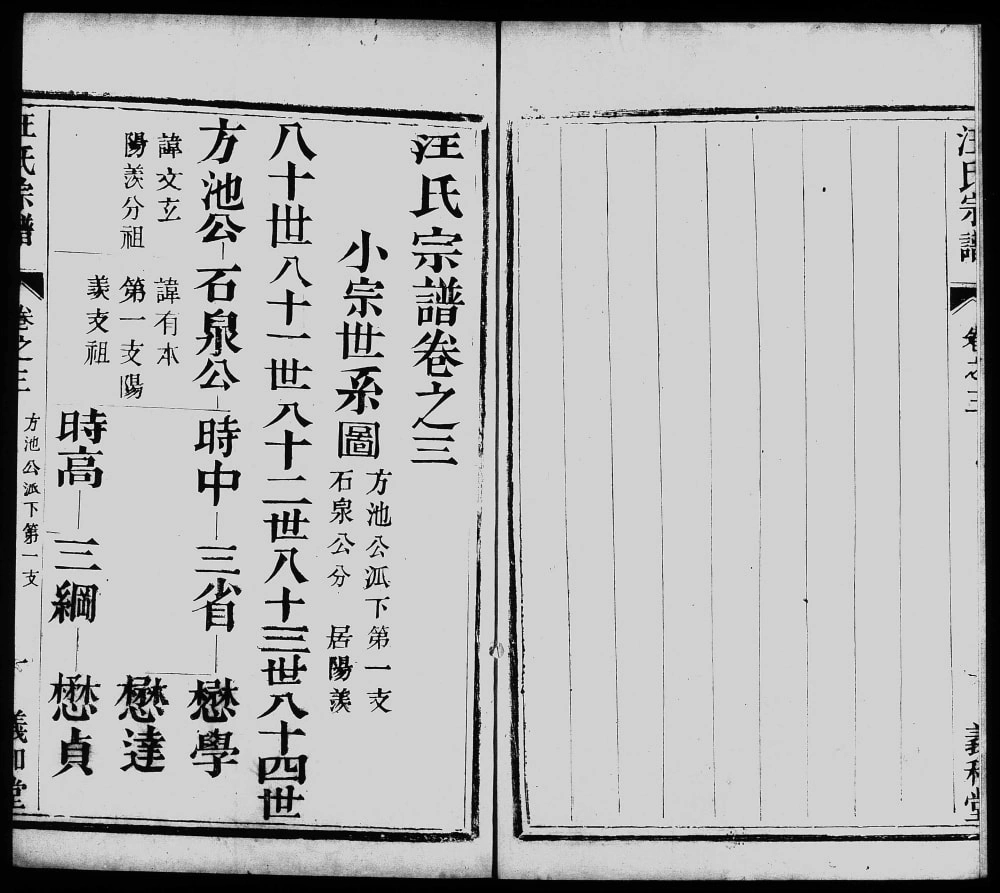 汪氏宗譜
卷之三
義和堂
汪氏宗譜卷之三
小宗世系圖
方池公派下第一支
石泉公分 居陽羨
八十世八十一世八十二世八十三世八十四世
方池公 石泉公 時中 三省 懋學
諱文玄
陽羨分祖
諱有本
第一支陽
羨支祖
懋達
時高 三綱 懋貞
汪氏宗譜
卷之三
方池公派下第一支
一
義和堂